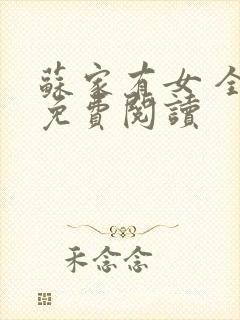 蘇家有女 全
免費閱讀
禾念念